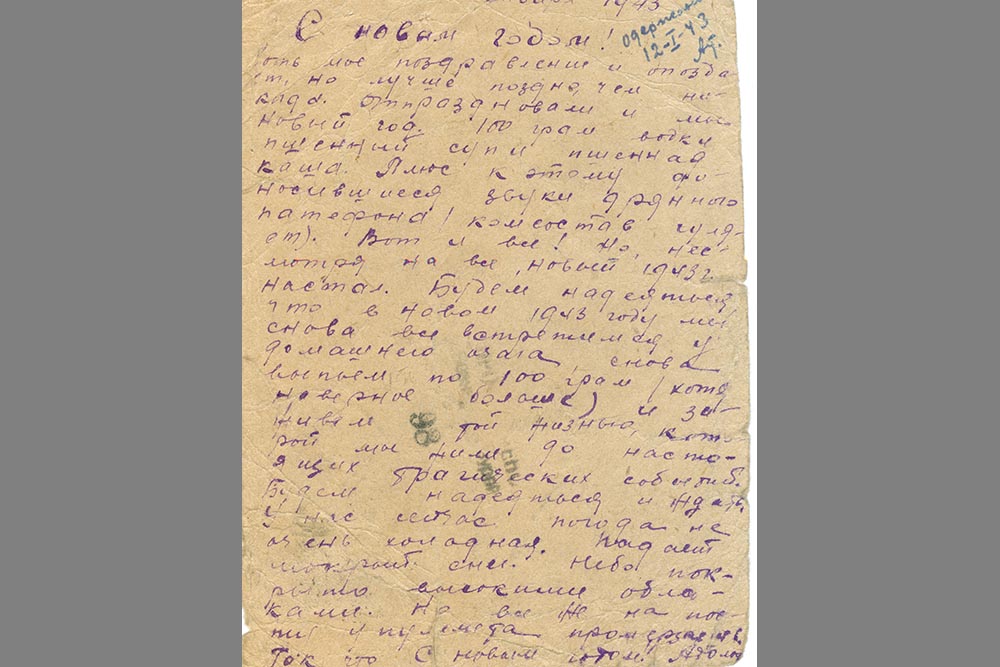 1943
С новым годом!
Одержано
12-I-43
хоть мое поздравление и опозда-
ет, но лучше поздно, чем ни-
когда. Отпраздновали и мы
новый год. 100 грам водки
пшенный суп и пшенная
каша. Плюс к этому до-
носившиеся звуки дрянного
патефона (комсостав гуля-
ет). Вот и все! Но, нес-
мотря на все, новый 1943 г.
настал. Будем надеяться
что в новом 1943 году мы
снова все встретимся у
домашнего очага, снова
выпьем по 100 грам (хотя
наверное больше) и за-
живем той жизнью, кото-
рой мы жили до насто-
ящих трагических событий.
Будем надеяться и ждать.
У нас сейчас погода не
очень холодная. Падает
мокрый снег. Небо пок-
рыто высокими обла-
ками. Но все ж на пос-
ту у пулемета промерзаешь.
Так что С новым годом!
98